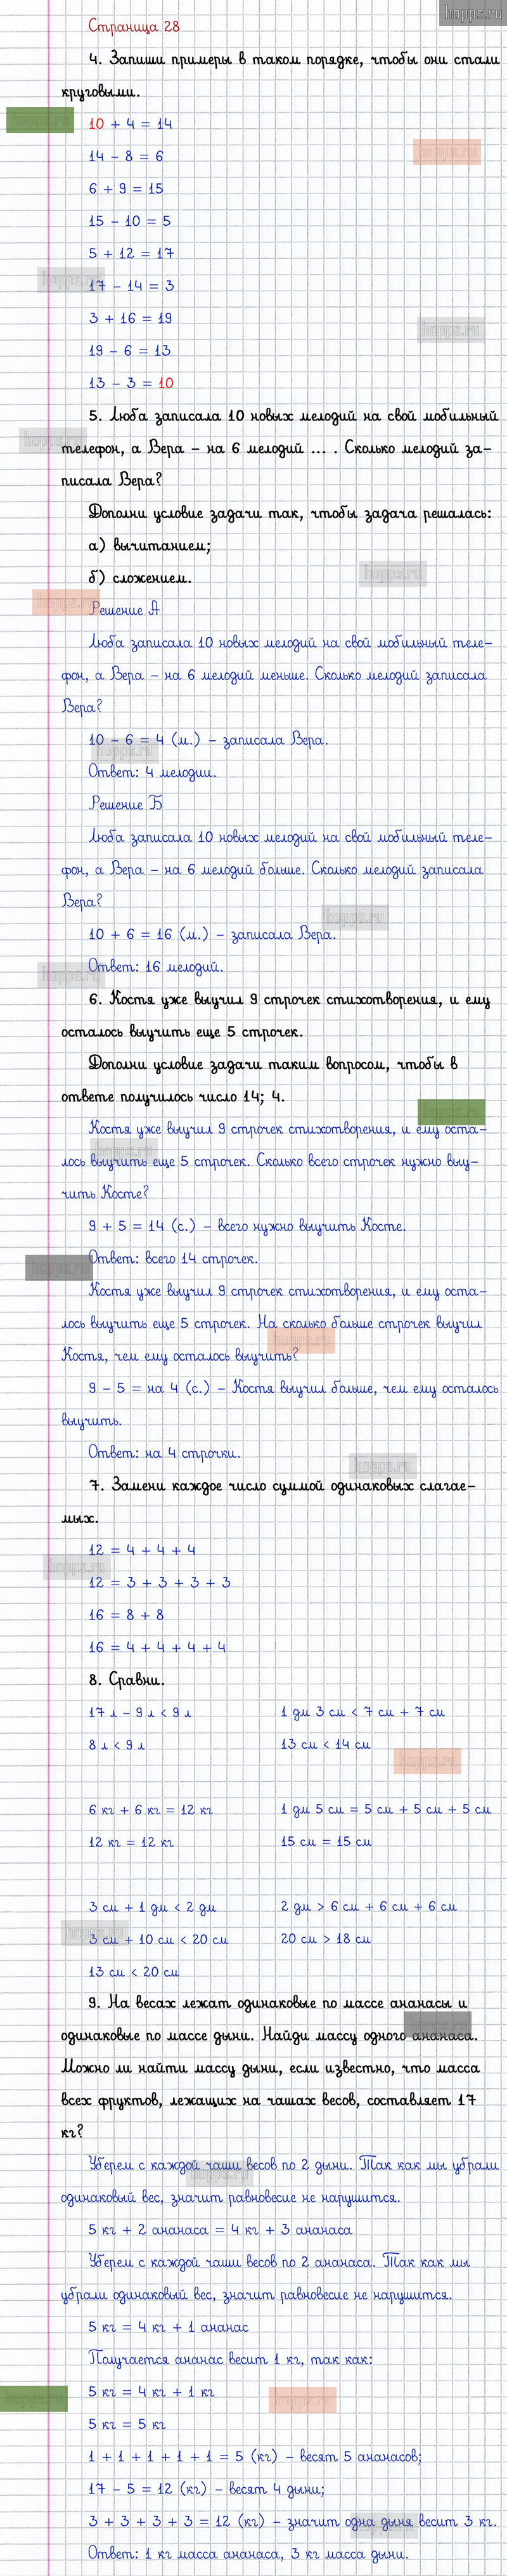 hopps.ru
Страница 28
4. Запиши примеры в таком порядке, чтобы они стали
круговыми.
10 + 4 = 14
14 – 8 = 6
6 + 9 = 15
15 – 10 = 5
5 + 12 = 17
17 – 14 = 3
3 + 16 = 19
19 – 6 = 13
13 – 3 = 10
5. Люба записала 10 новых мелодий на свой мобильный
телефон, а Вера – на 6 мелодий ... . Сколько мелодий за-
писала Вера?
Дополни условие задачи так, чтобы задача решалась:
а) вычитанием;
б) сложением.
Решение А
Люба записала 10 новых мелодий на свой мобильный теле-
фон, а Вера – на 6 мелодий меньше. Сколько мелодий записала
Вера?
10 – 6 = 4 (м.) – записала Вера.
Ответ: 4 мелодии.
Решение Б
Люба записала 10 новых мелодий на свой мобильный теле-
фон, а Вера – на 6 мелодий больше. Сколько мелодий записала
Вера?
10 + 6 = 16 (м.) – записала Вера.
Ответ: 16 мелодий.
6. Костя уже выучил 9 строчек стихотворения, и ему
осталось выучить еще 5 строчек.
Дополни условие задачи таким вопросом, чтобы в
ответе получилось число 14; 4.
Костя уже выучил 9 строчек стихотворения, и ему оста-
лось выучить еще 5 строчек. Сколько всего строчек нужно выу-
чить Косте?
9 + 5 = 14 (с.) – всего нужно выучить Косте.
Ответ: всего 14 строчек.
Костя уже выучил 9 строчек стихотворения, и ему оста-
лось выучить еще 5 строчек. На сколько больше строчек выучил
Костя, чем ему осталось выучить?
9 – 5 = на 4 (с.) – Костя выучил больше, чем ему осталось
выучить.
Ответ: на 4 строчки.
7. Замени каждое число суммой одинаковых слагае-
мых.
12 = 4 + 4 + 4
12 = 3 + 3 + 3 + 3
16 = 8 + 8
16 = 4 + 4 + 4 + 4
8. Сравни.
17 л – 9 л < 9 л
8 л < 9 л
1 дм 3 см < 7 см + 7 см
13 см < 14 см
6 кг + 6 кг = 12 кг
12 кг = 12 кг
1 дм 5 см = 5 см + 5 см + 5 см
15 см = 15 см
3 см + 1 дм < 2 дм
3 см + 10 см < 20 см
13 см < 20 см
2 дм > 6 см + 6 см + 6 см
20 см > 18 см
9. На весах лежат одинаковые по массе ананасы и
одинаковые по массе дыни. Найди массу одного ананаса.
Можно ли найти массу дыни, если известно, что масса
всех фруктов, лежащих на чашах весов, составляет 17
кг?
Уберем с каждой чаши весов по 2 дыни. Так как мы убрали
одинаковый вес, значит равновесие не нарушится.
5 кг + 2 ананаса = 4 кг + 3 ананаса
Уберем с каждой чаши весов по 2 ананаса. Так как мы
убрали одинаковый вес, значит равновесие не нарушится.
5 кг = 4 кг + 1 ананас
Получается ананас весит 1 кг, так как:
5 кг = 4 кг + 1 кг
5 кг = 5 кг
1 + 1 + 1 + 1 + 1 = 5 (кг) – весят 5 ананасов;
17 – 5 = 12 (кг) – весят 4 дыни;
3 + 3 + 3 + 3 = 12 (кг) – значит одна дыня весит 3 кг.
Ответ: 1 кг масса ананаса, 3 кг масса дыни.